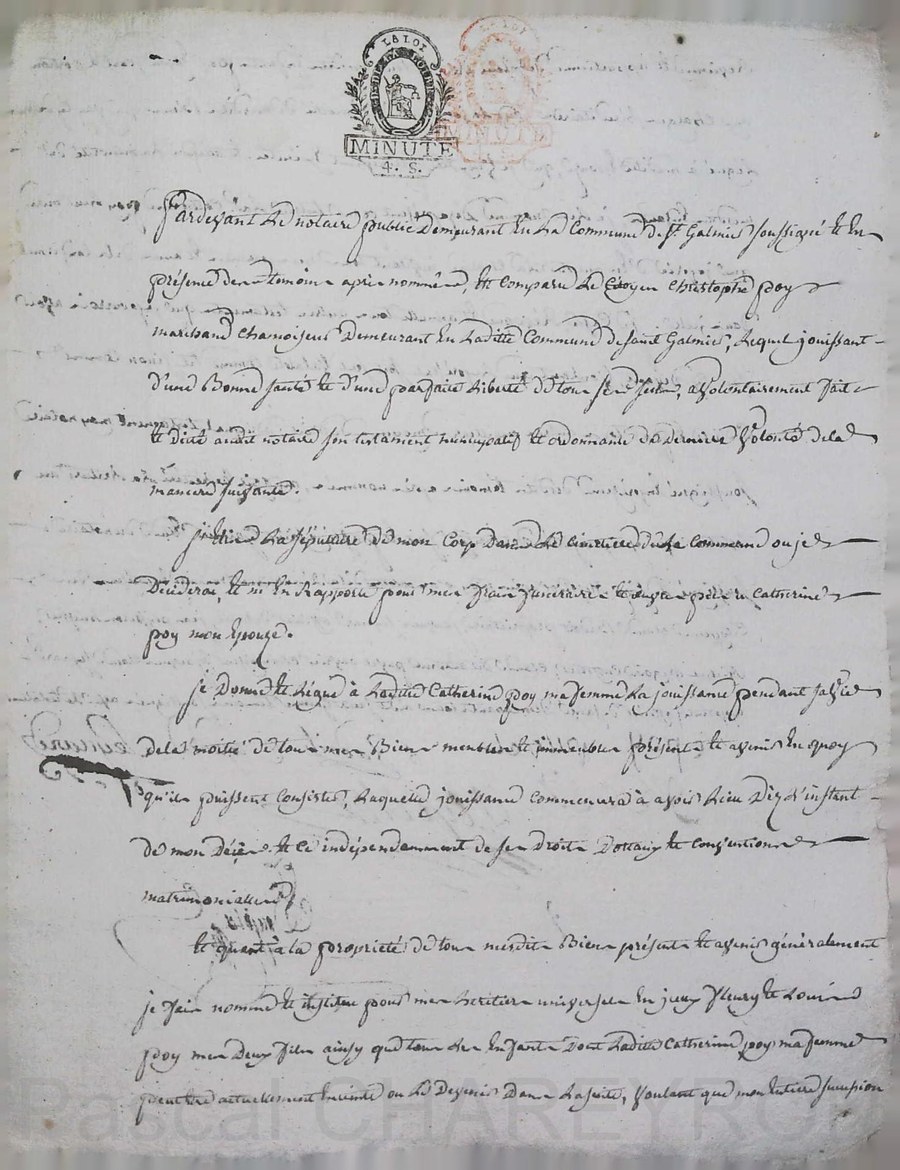 LA LOI
MINUTE
4. S.
LA LOI
MINUTE
Pardevant Le notaire public Demeurant En La Commune de St. Galmier soussigné et En
présence des temoins après nommés, Est comparu Le Citoyen Christophe poy
marchand chamoiseur Demeurant En Laditte Commune de saint Galmier, Lequel jouissant
d'une Bonne santé et d'une parfaite Liberté De tous ses sens, a volontairement fait
et dicté audit notaire son testament nuncupatif et ordonnance De Derniere Volonté dela
maniere suivante.
La sépulture De mon Corps Dans Le Cimetiere De La commune ou je
Décéderai, et m'En Rapporte pour mes frais funéraires et à Catherine
poy mon Epouze.
je Donne et Légue à Laditte Catherine poy ma femme La jouissance pendant sa Vie
De la moitié De tous mes Biens meubles et immeubles présents et avenir En quoy
qu'ils puissent Consister, Laquelle jouissance commencera à avoir Lieu Dez L'instant
De mon Décès et ce indépendamment de ses Droits Dottaux et Conventions
matrimoniales
Et quant à la proprieté De tous mesdits Biens présents et avenir généralement
je fais nomme et institue pour mes heritiers universels En iceux Fleury et Louis
poy mes Deux fils ainsy que tous Les Enfants Dont Laditte Catherine poy ma femme
peut être actuellement Enceinte ou Le Devenir Dans La suite, Voulant que mon Entiere succession
Pascal CHAREYRON